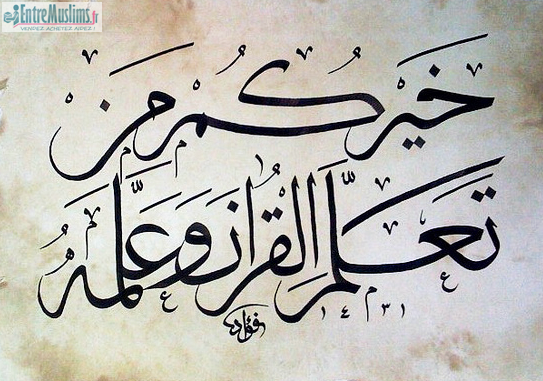 EntreMuslims.fr
VENDEZ ACHETEZ AVEC !
خَيْرُكُمْ مَنْ
تَعَلَّمَ القُرْانَ وَعَلَّمَهُ
١٤٣١
فؤاد